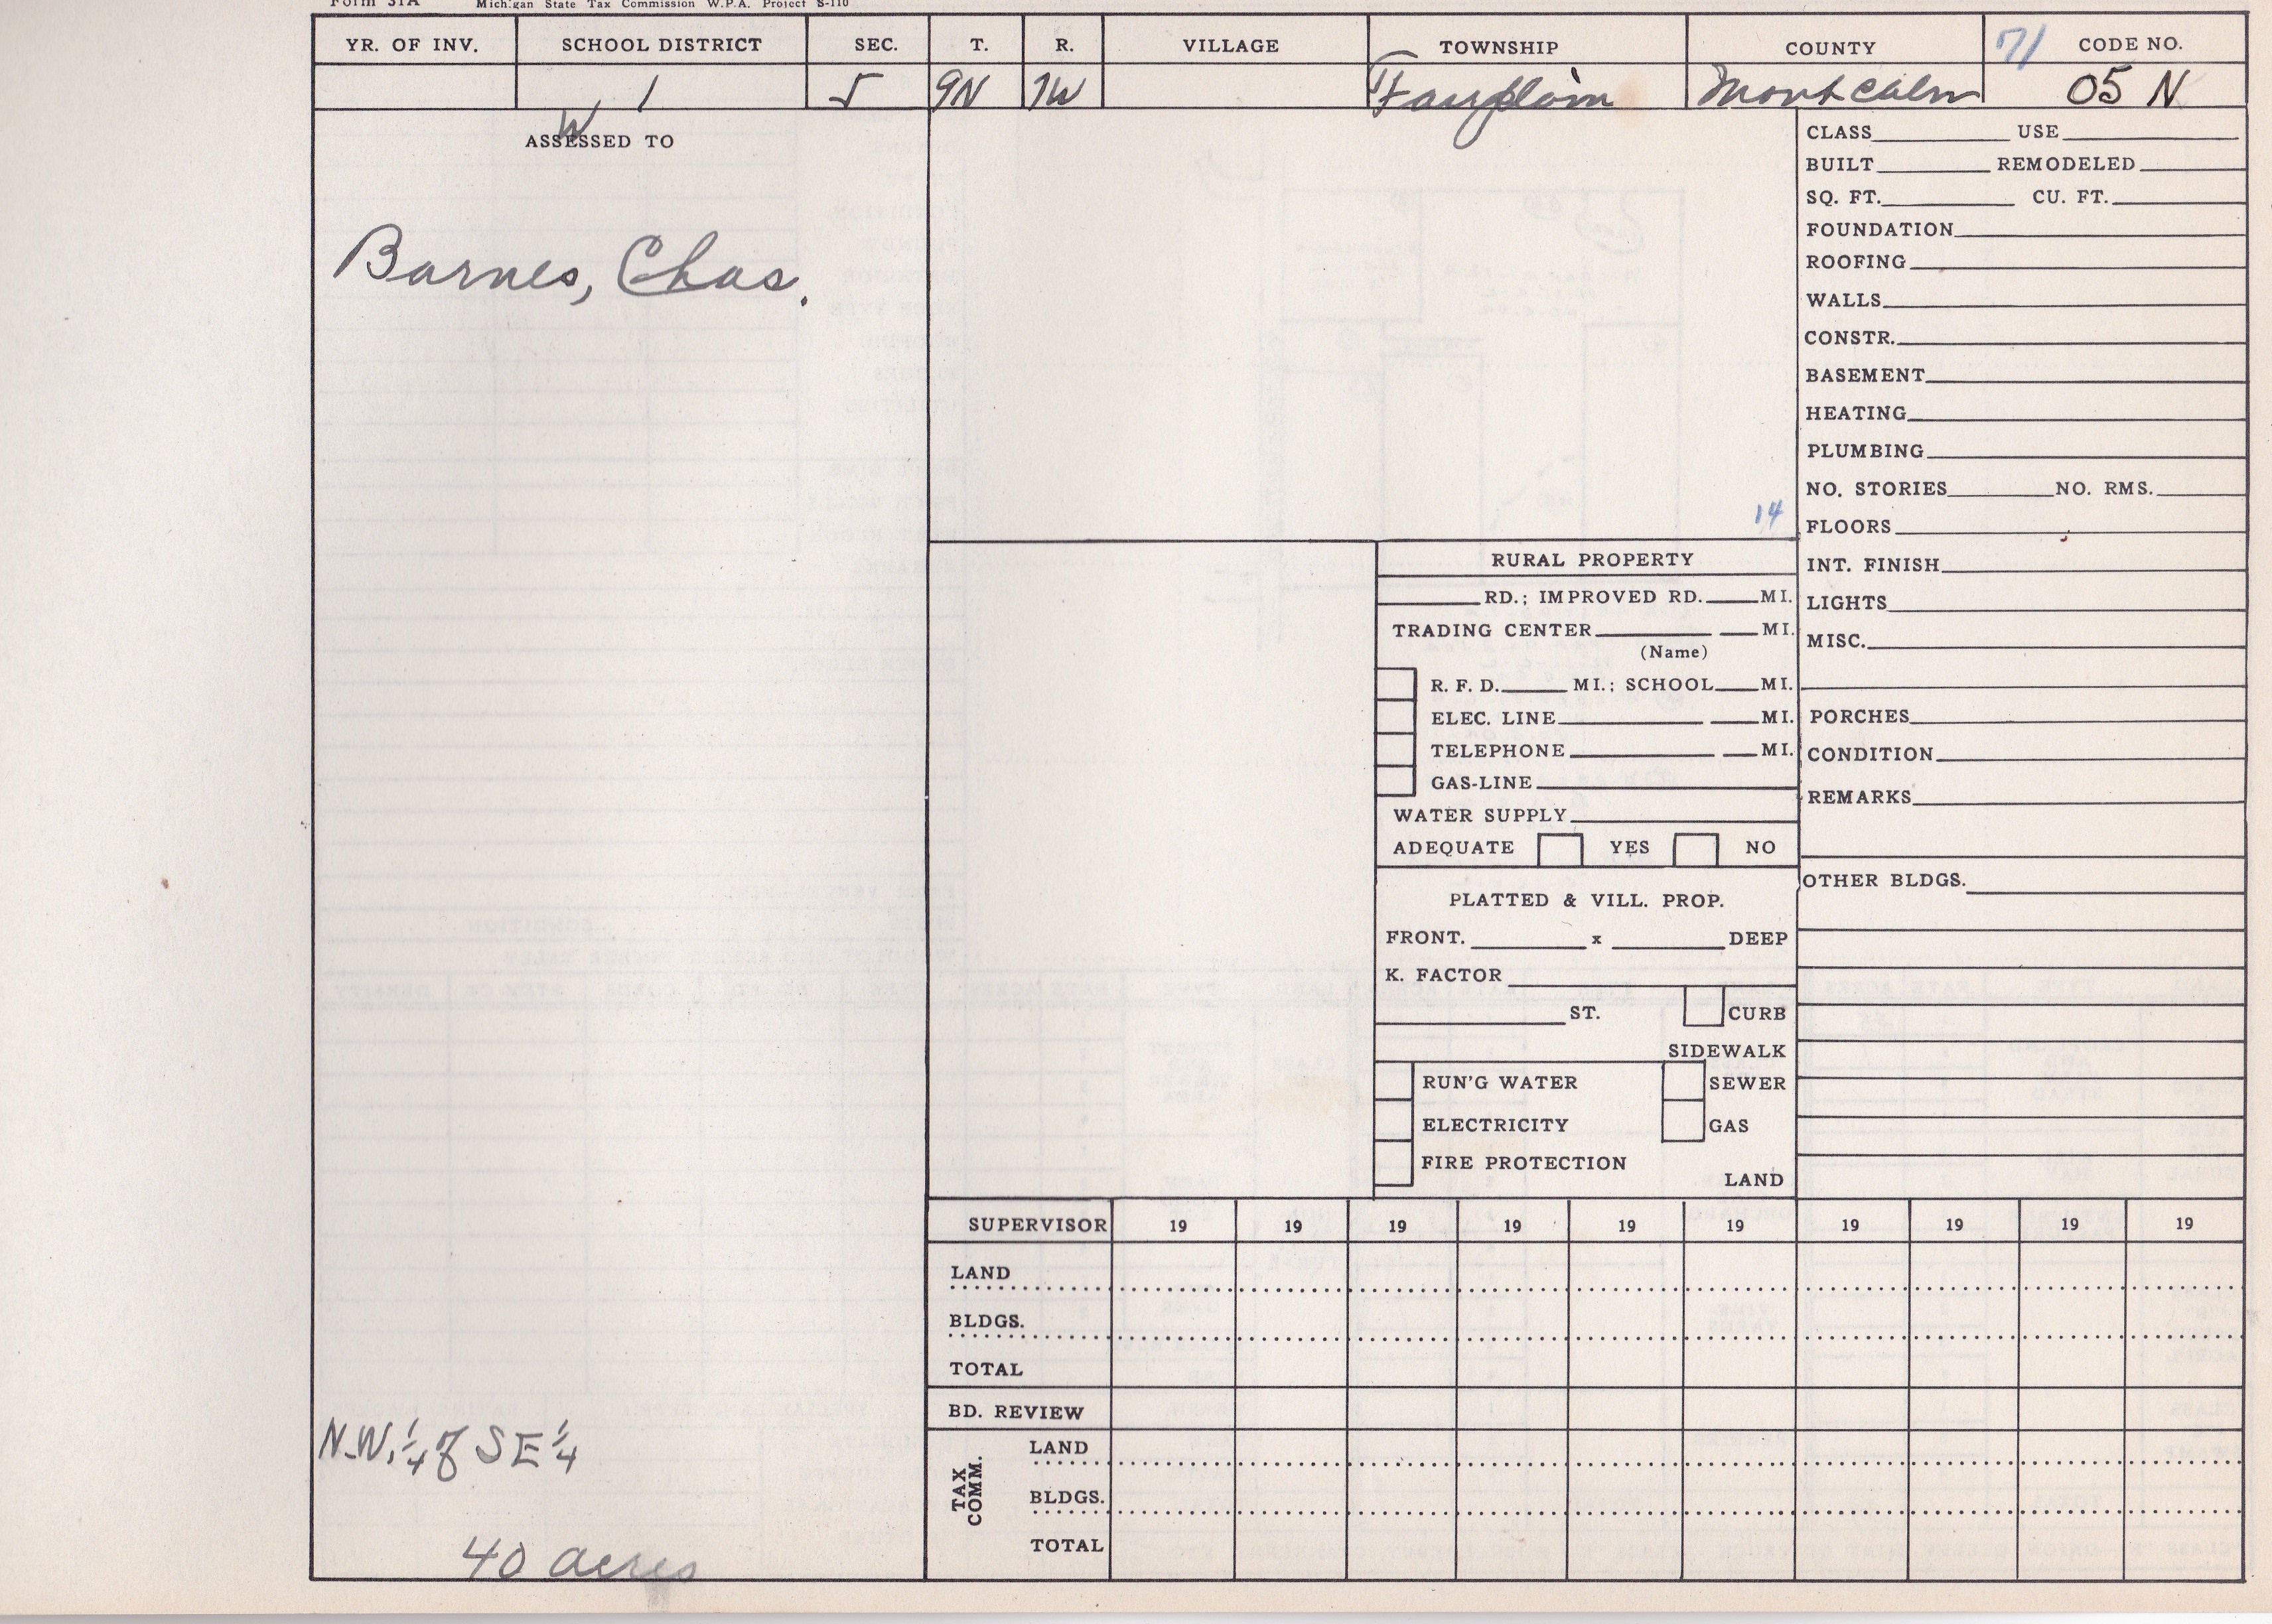 Form 31A Michigan State Tax Commission W.P.A. Project S-110
YR. OF INV. SCHOOL DISTRICT SEC. T. R. VILLAGE TOWNSHIP COUNTY 71 CODE NO.
1 5 9N 7W Fairplain Montcalm 05 N
W
ASSESSED TO
Barnes, Chas.
N.W. 1/4 of SE 1/4
40 acres
14
RURAL PROPERTY
RD.; IMPROVED RD. MI.
TRADING CENTER MI.
(Name)
R. F. D. MI.; SCHOOL MI.
ELEC. LINE MI.
TELEPHONE MI.
GAS-LINE
WATER SUPPLY
ADEQUATE YES NO
PLATTED & VILL. PROP.
FRONT. x DEEP
K. FACTOR
ST. CURB
SIDEWALK
RUN'G WATER SEWER
ELECTRICITY GAS
FIRE PROTECTION
LAND
CLASS USE
BUILT REMODELED
SQ. FT. CU. FT.
FOUNDATION
ROOFING
WALLS
CONSTR.
BASEMENT
HEATING
PLUMBING
NO. STORIES NO. RMS.
FLOORS
INT. FINISH
LIGHTS
MISC.
PORCHES
CONDITION
REMARKS
OTHER BLDGS.
SUPERVISOR 19 19 19 19 19 19 19 19 19 19
LAND
BLDGS.
TOTAL
BD. REVIEW
TAX COMM.
LAND
BLDGS.
TOTAL